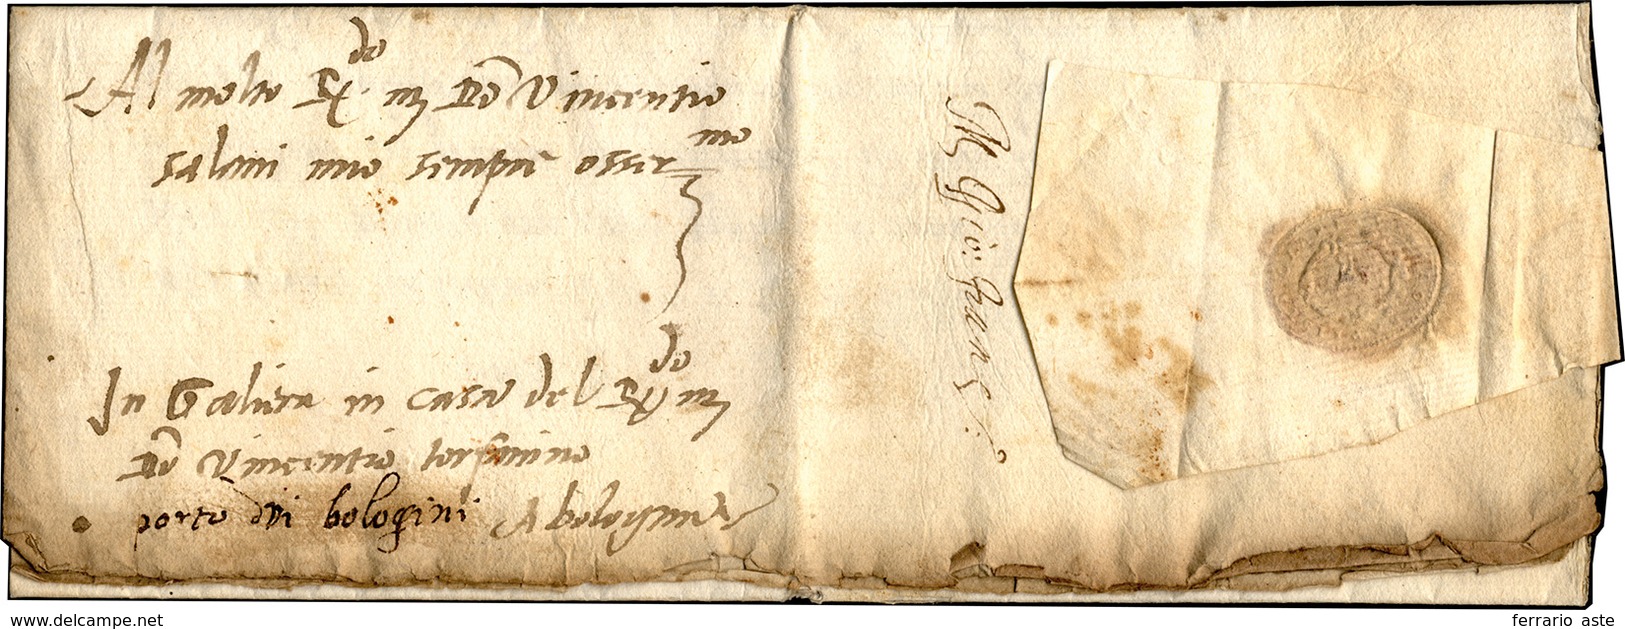 Al molto R.do m. Dō Vincentio
salani mio sempre osser.mo
In Galiera in casa del R.do m.
Dō Vincentio
porto doi bologini A bologna
M. Giò: Franc.
delcampe.net
ferrario aste